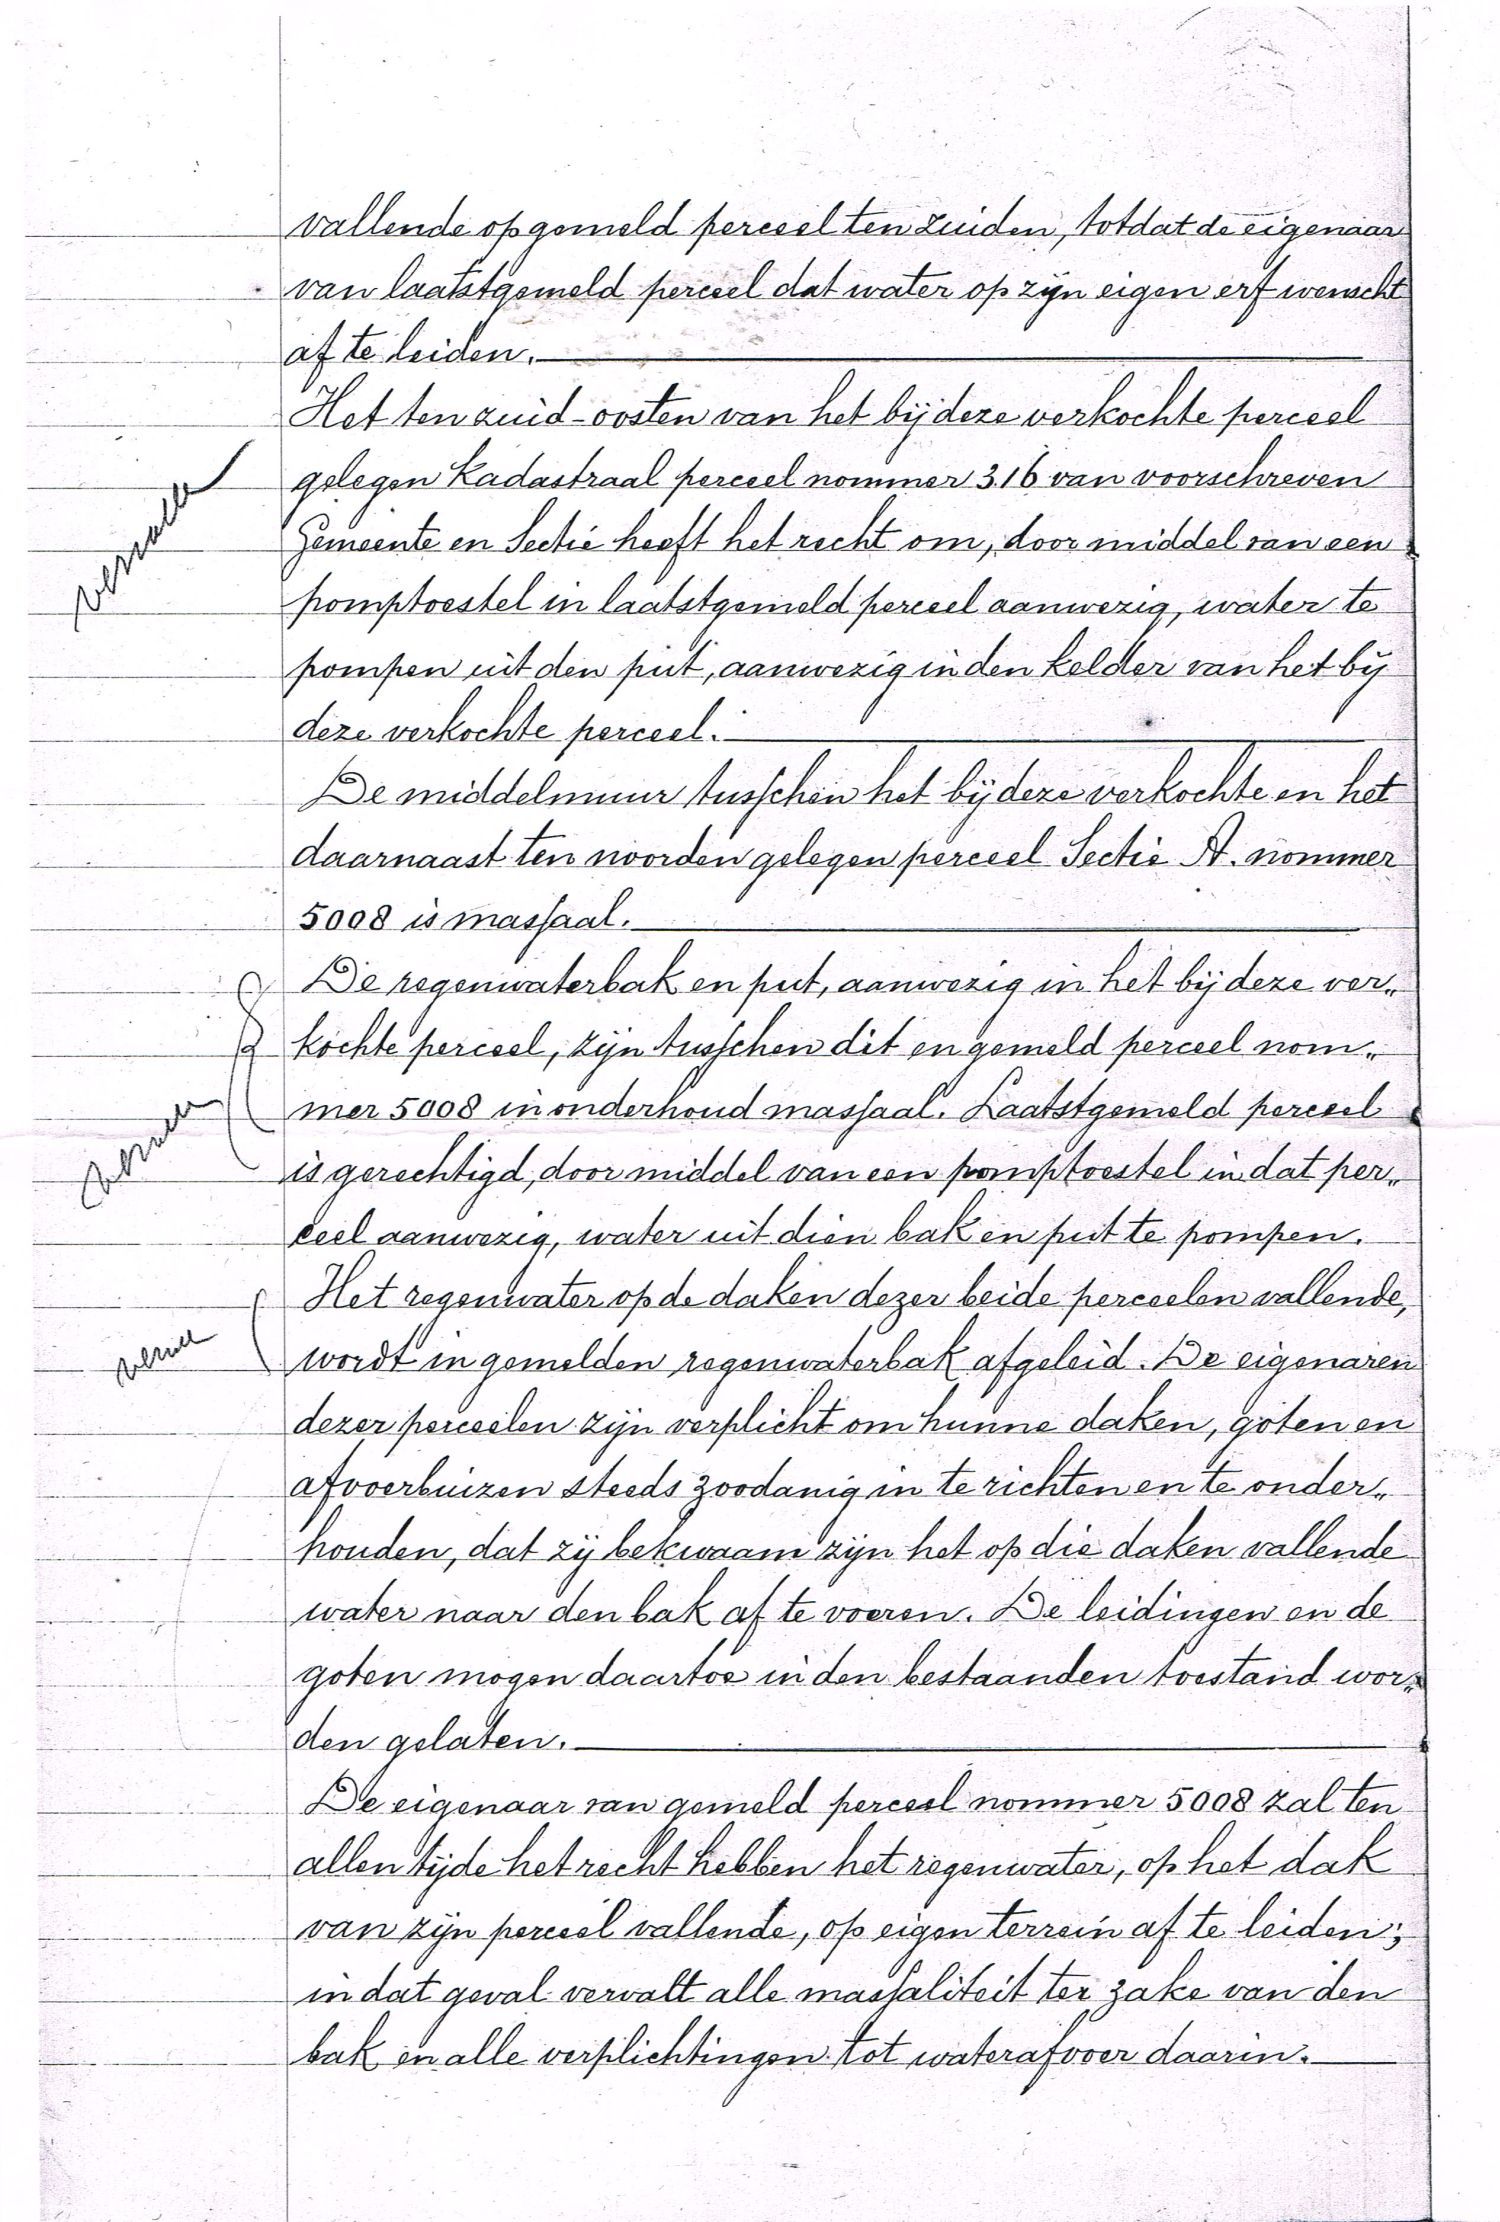 vallende op gemeld perceel ten zuiden, totdat de eigenaar
van laatstgemeld perceel dat water op zijn eigen erf wenscht
af te leiden.
Het ten zuid-oosten van het bij deze verkochte perceel
gelegen kadastraal perceel nommer 316 van voorschreven
Gemeente en Sectie heeft het recht om, door middel van een
pomptoestel in laatstgemeld perceel aanwezig, water te
pompen uit den put, aanwezig in den kelder van het bij
deze verkochte perceel.
De middelmuur tusschen het bij deze verkochte en het
daarnaast ten noorden gelegen perceel Sectie A. nommer
5008 is massaal.
De regenwaterbak en put, aanwezig in het bij deze ver„
kochte perceel, zijn tusschen dit en gemeld perceel nom„
mer 5008 in onderhoud massaal. Laatstgemeld perceel
is gerechtigd, door middel van een pomptoestel in dat per„
ceel aanwezig, water uit dien bak en put te pompen.
Het regenwater op de daken dezer beide perceelen vallende,
wordt in gemelden regenwaterbak afgeleid. De eigenaren
dezer perceelen zijn verplicht om hunne daken, goten en
afvoerbuizen steeds zoodanig in te richten en te onder„
houden, dat zij bekwaam zijn het op die daken vallende
water naar den bak af te voeren. De leidingen en de
goten mogen daartoe in den bestaanden toestand wor„
den gelaten.
De eigenaar van gemeld perceel nommer 5008 zal ten
allen tijde het recht hebben het regenwater, op het dak
van zijn perceel vallende, op eigen terrein af te leiden;
in dat geval vervalt alle massaliteit ter zake van den
bak en alle verplichtingen tot waterafvoer daarin.